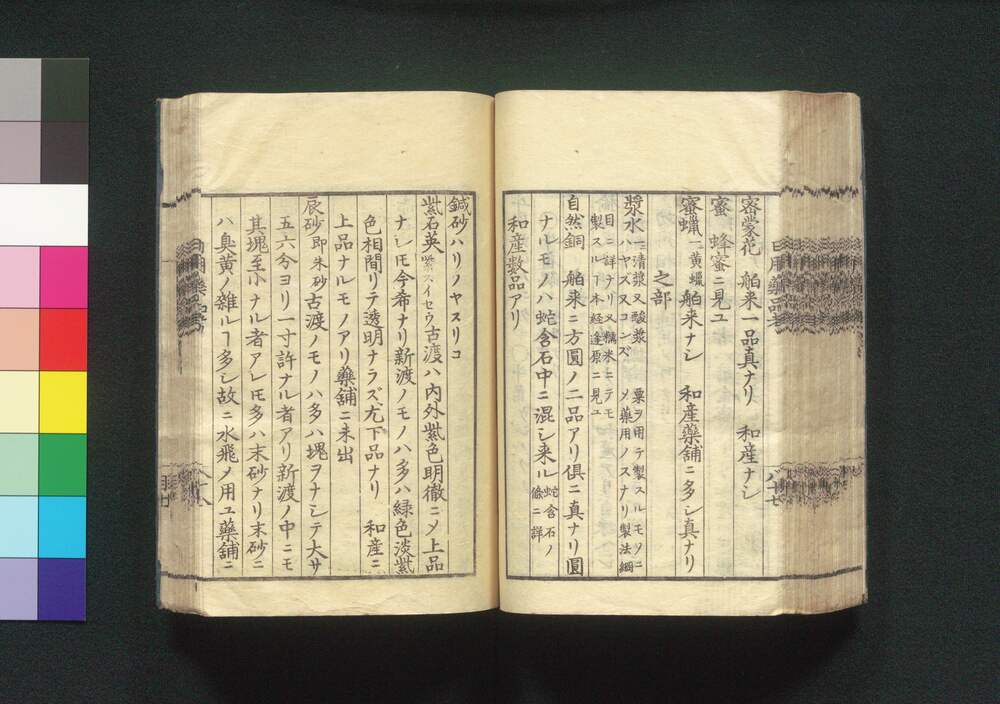 密蒙花　舶来一品真ナリ　和産ナシ
蜜　蜂蜜ニ見ユ
蜜蠟 一黄蠟 舶来ナシ　和産藥舗ニ多シ真ナリ
之部
漿水 一清漿又酸漿　粟ヲ用テ製スルモヲニ
ハヤズ又コンズ　メ藥用ノスナリ製法綱
目ニ詳ナリ又糯米ニテモ
製スルヿ本経逢原ニ見ユ
自然銅　舶来ニ方圓ノ二品アリ倶ニ真ナリ圓
ナルモノハ蛇含石中ニ混シ来ル 蛇含石ノ
條ニ詳
和産数品アリ
鍼砂ハリノヤスリコ
紫石英 紫スイセウ 古渡ハ内外紫色明徹ニメ上品
ナレ𪜈今希ナリ新渡ノモノハ多ハ緑色淡紫
色相間リテ透明ナラズ尤下品ナリ　和産ニ
上品ナルモノアリ藥舗ニ未出
辰砂 即朱砂 古渡ノモノハ多ハ塊ヲナシテ大サ
五六分ヨリ一寸許ナル者アリ新渡ノ中ニモ
其塊至小ナル者アレ𪜈多ハ末砂ナリ末砂ニ
ハ臭黄ノ雑ルヿ多シ故ニ水飛メ用ユ藥舗ニ
日用藥品考
八十七